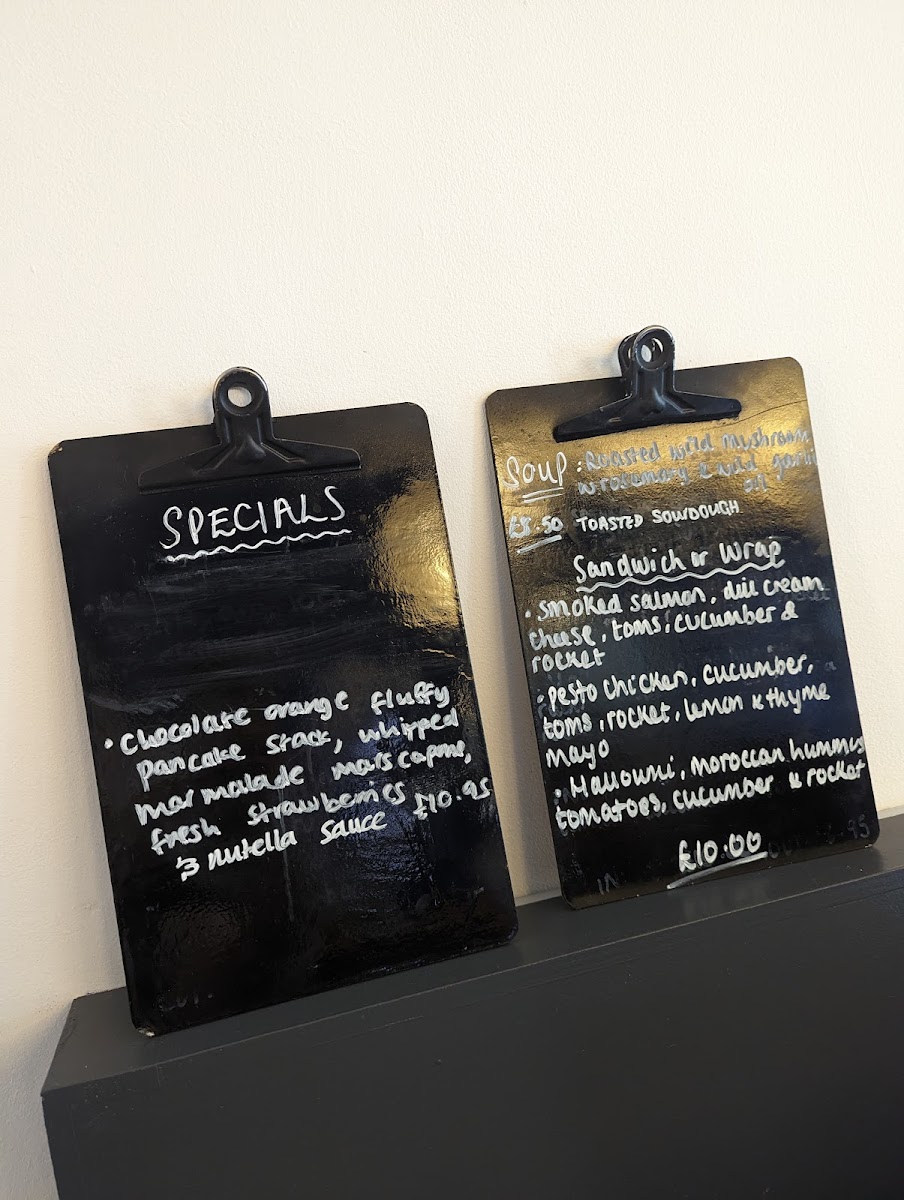 SPECIALS
• Chocolate orange fluffy
pancake stack, whipped
marmalade marscapone,
fresh strawberries
& nutella sauce £10.95
Soup : Roasted wild mushroom
w rosemary & wild garlic
oil
£8.50 TOASTED SOURDOUGH
Sandwich or Wrap
• Smoked salmon, dill cream
cheese, toms, cucumber &
rocket
• Pesto chicken, cucumber,
toms, rocket, lemon & thyme
mayo
• Halloumi, moroccan hummus
tomatoes, cucumber & rocket
£10.00